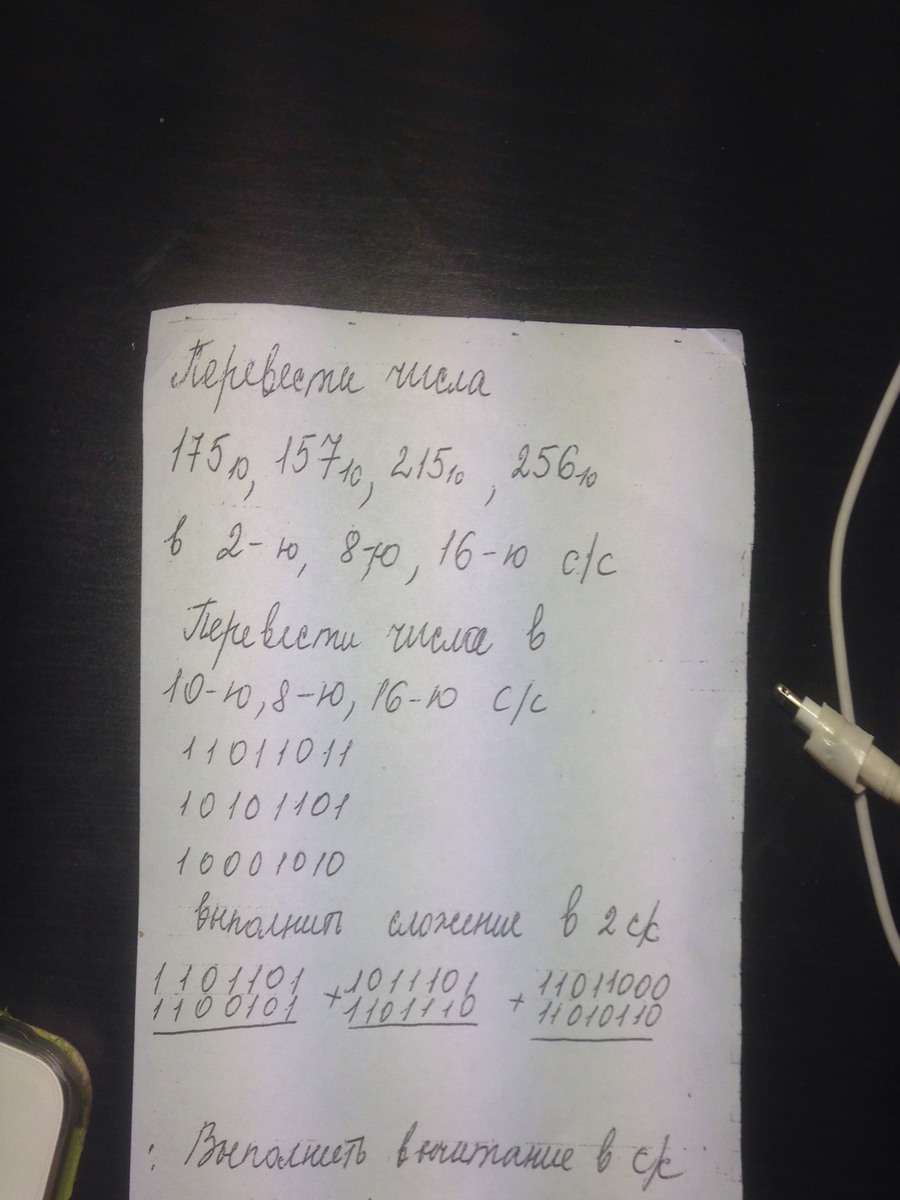 Перевести числа
175₁₀, 157₁₀, 215₁₀, 256₁₀
в 2-ю, 8-ю, 16-ю с/с
Перевести числа в
10-ю, 8-ю, 16-ю с/с
11011011
10101101
10001010
выполнить сложение в 2 с/с
1101101 + 1011101 + 11011000
1100101 1101110 11010110
: Выполнить вычитание в с/с